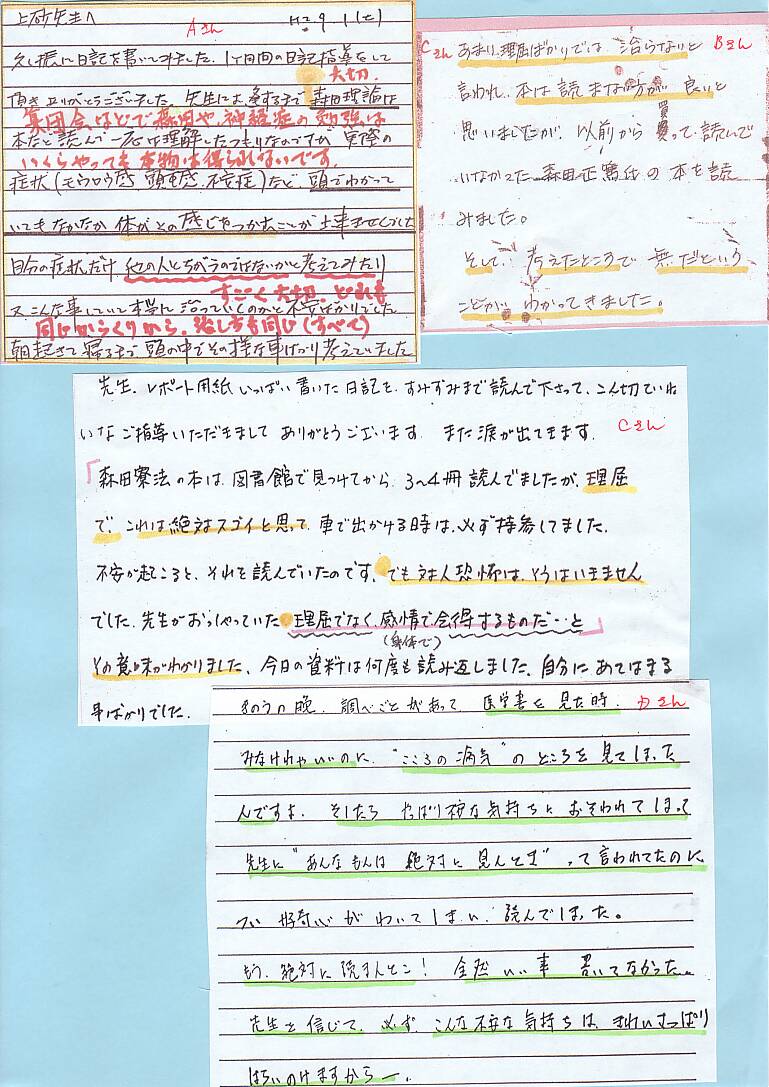 Aさん
久し振に日記を書いてみました。1ヶ月間の日記指導をして
大切.
頂きありがとうございました。先生にお会するまで森田理論は
集団会などで森田や、神経症の勉強は
本だと読んで一応は理解したつもりなのですが、実際の
いくらやっても本物は得られないです。
症状(モウロウ感、頭重感、不安症)など、頭でわかって
いてもなかなか体がその感じをつかむことが出来ませんでした
自分の症状だけ他の人とちがうのではないかと考えてみたり
すごく大切. どれも
又こんな事していて本当に治っていくのかと不安ばかりでした
同じからくりから。治し方も同じ(すべて)
朝起きて寝るまで頭の中でその様な事ばかり考えていました
Cさん あまり理屈ばかりでは治らないと Bさん
言われ、本は読まない方が良いと
思いましたが、以前から買って読んで
いなかった森田正篤氏の本を読
みました。
そして考えたところで無だという
ことがわかってきました。
先生、レポート用紙いっぱい書いた日記を、すみずみまで読んで下さって、こんな切ていね
いなご指導いただきまして ありがとうございます。また涙が出てきます。 Cさん
「森田療法の本は、図書館で見つけてから、3〜4冊読んでましたが、理屈
で、これは絶対スゴイと思って、車で出かける時は、必ず持参してました。
不安が起こると、それを読んでいたのです、でも対人恐怖は、そうはいきません
でした。先生がおっしゃっていた 理屈でなく、感情で会得するものだ…と」
(身体で)
その意味がわかりました、今日の資料は何度も読み返しました、自分にあてはまる
事ばかりでした。
きのうの晩、調べごとがあって 医学書を見た時、 Dさん
みなけれゃいいのに、"こころの病気"のところを見てしまった
んですよ。そしたら やっぱり不安な気持ちにおそわれてしまって
先生に"あんなもんは 絶対に見んとき"って言われてたのに
つい好奇心がわいてしまい、読んでしまった。
もう、絶対に読まんとこ! 全然 いい事 書いてなかった。
先生を信じて、必ず、こんな不安な気持ちは、きれいさっぱり
はらいのけますからー.